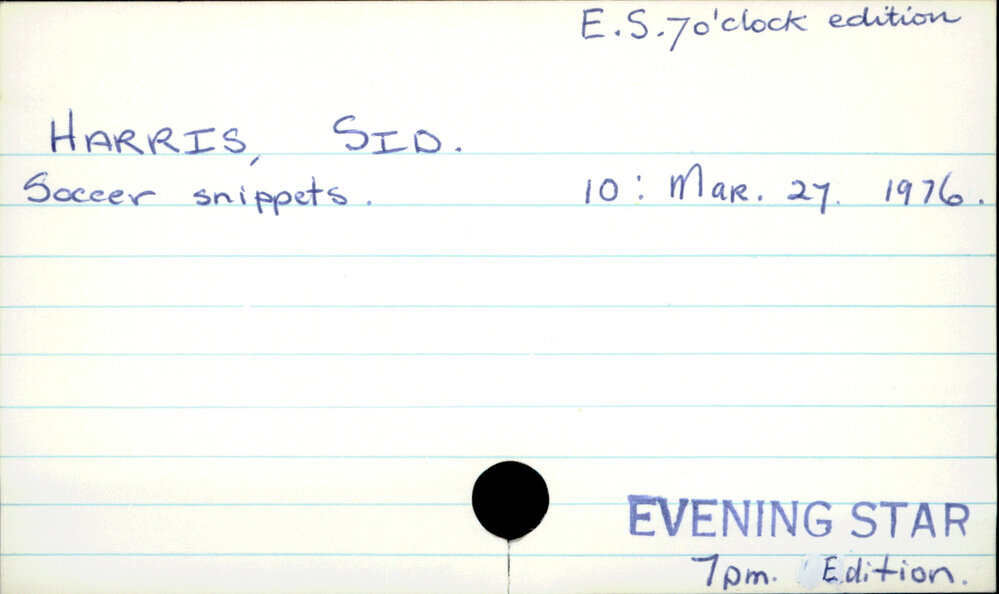 E.S. 7o'clock edition
HARRIS, SID.
Soccer snippets. 10: Mar. 27. 1976.
EVENING STAR
7pm. Edition.